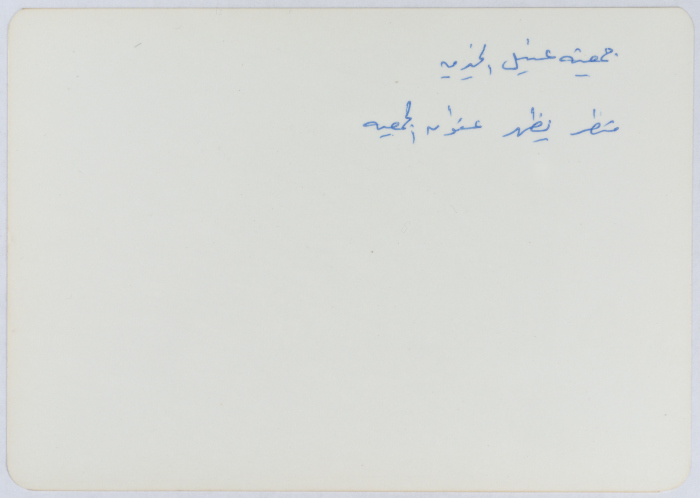 جمعية عنيل الخيرية
منظر يظهر عنوان الجمعية